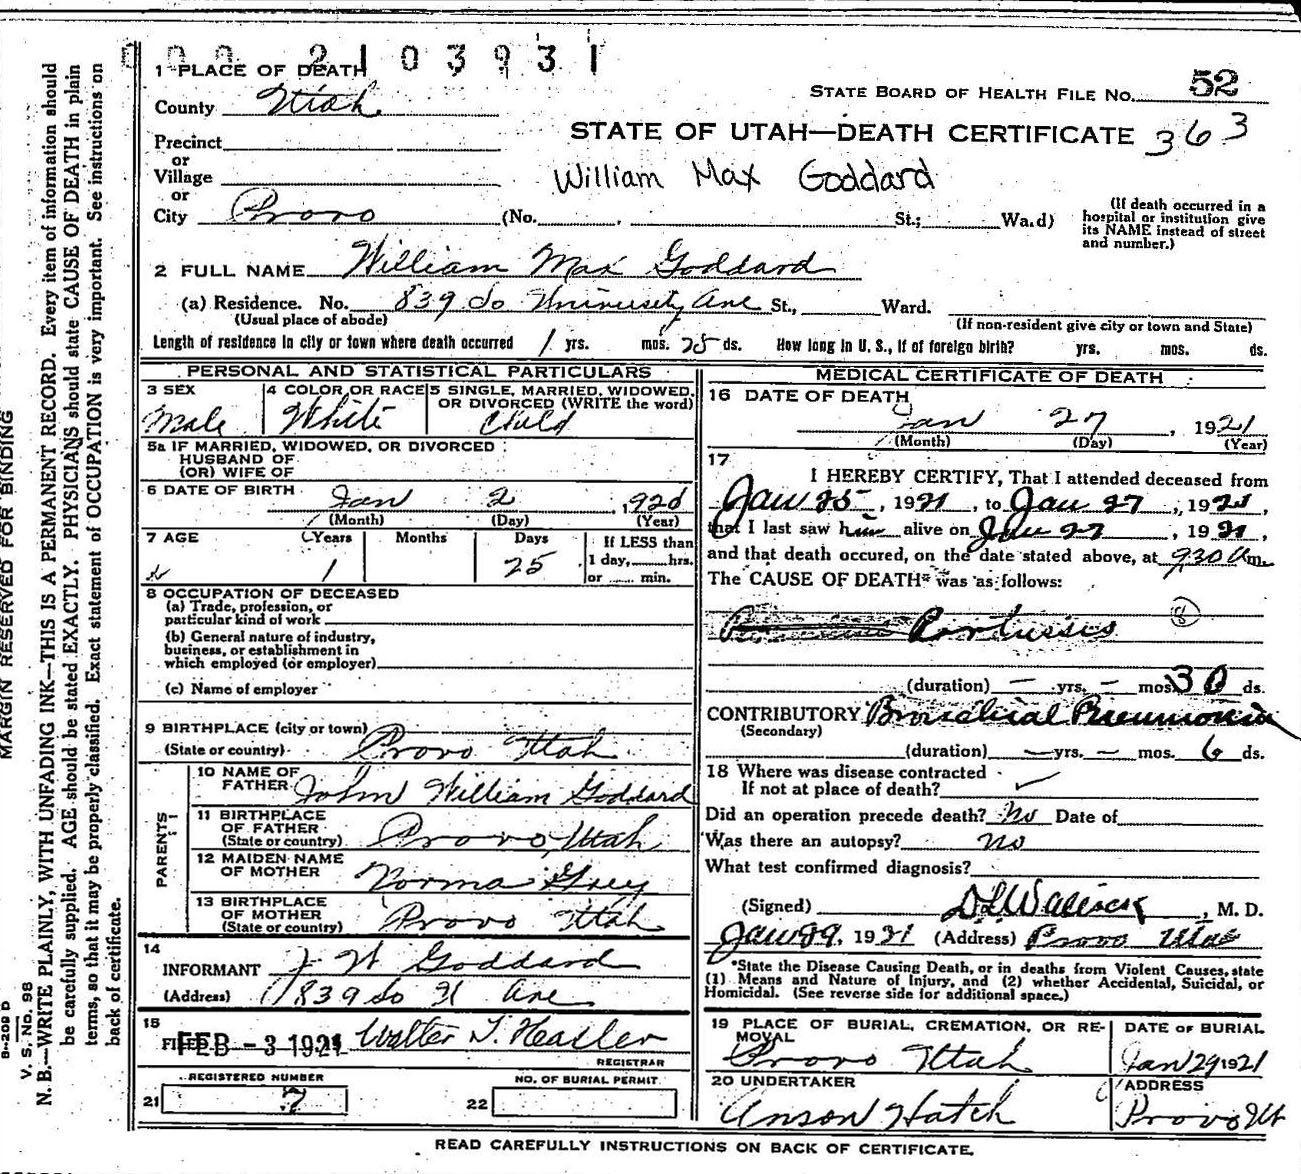 2103931
1 PLACE OF DEATH
County Utah
STATE BOARD OF HEALTH FILE NO. 52
STATE OF UTAH—DEATH CERTIFICATE 363
Precinct
or
Village
William Max Goddard
or
City Provo (No. , St.; Wa.d)
(If death occurred in a
hospital or institution give
its NAME instead of street
and number.)
2 FULL NAME William Max Goddard
(a) Residence. No. 839 So University Ave St., Ward.
(Usual place of abode) (If non-resident give city or town and State)
Length of residence in city or town where death occurred 1 yrs. mos. 25 ds. How long in U. S., if of foreign birth? yrs. mos. ds.
PERSONAL AND STATISTICAL PARTICULARS
3 SEX 4 COLOR OR RACE 5 SINGLE, MARRIED, WIDOWED,
OR DIVORCED (WRITE the word)
Male White Child
5a IF MARRIED, WIDOWED, OR DIVORCED
HUSBAND OF
(OR) WIFE OF
6 DATE OF BIRTH Jan 2 1920
(Month) (Day) (Year)
7 AGE Years Months Days If LESS than
1 day, hrs.
or min.
1 25
8 OCCUPATION OF DECEASED
(a) Trade, profession, or
particular kind of work
(b) General nature of industry,
business, or establishment in
which employed (or employer)
(c) Name of employer
9 BIRTHPLACE (city or town)
(State or country) Provo Utah
PARENTS
10 NAME OF
FATHER John William Goddard
11 BIRTHPLACE
OF FATHER
(State or country) Provo, Utah
12 MAIDEN NAME
OF MOTHER Norma Grey
13 BIRTHPLACE
OF MOTHER
(State or country) Provo Utah
14
INFORMANT J W Goddard
(Address) 839 So U Ave
15
FILED FEB -3 1921 Walter T. Hasler
REGISTRAR
REGISTERED NUMBER NO. OF BURIAL PERMIT
21 7 22
MEDICAL CERTIFICATE OF DEATH
16 DATE OF DEATH
Jan 27, 1921
(Month) (Day) (Year)
17
I HEREBY CERTIFY, That I attended deceased from
Jan 25, 1921, to Jan 27, 1921,
that I last saw him alive on Jan 27, 1921,
and that death occured, on the date stated above, at 9:30 a m.
The CAUSE OF DEATH* was as follows:
Pertussis 8
(duration) — yrs. — mos. 30 ds.
CONTRIBUTORY Bronchial Pneumonia
(Secondary)
(duration) — yrs. — mos. 6 ds.
18 Where was disease contracted
If not at place of death?
Did an operation precede death? No Date of
Was there an autopsy? no
What test confirmed diagnosis?
(Signed) , M. D.
Jan 29, 1921 (Address) Provo Utah
*State the Disease Causing Death, or in deaths from Violent Causes, state
(1) Means and Nature of Injury, and (2) whether Accidental, Suicidal, or
Homicidal. (See reverse side for additional space.)
19 PLACE OF BURIAL, CREMATION, OR RE-
MOVAL
DATE OF BURIAL
Provo Utah Jan 29 1921
20 UNDERTAKER ADDRESS
Anson Hatch Provo Ut
READ CAREFULLY INSTRUCTIONS ON BACK OF CERTIFICATE.
MARGIN RESERVED FOR BINDING
V. S. No. 98
N. B.—WRITE PLAINLY, WITH UNFADING INK—THIS IS A PERMANENT RECORD. Every item of information should
be carefully supplied. AGE should be stated EXACTLY. PHYSICIANS should state CAUSE OF DEATH in plain
terms, so that it may be properly classified. Exact statement of OCCUPATION is very important. See instructions on
back of certificate.